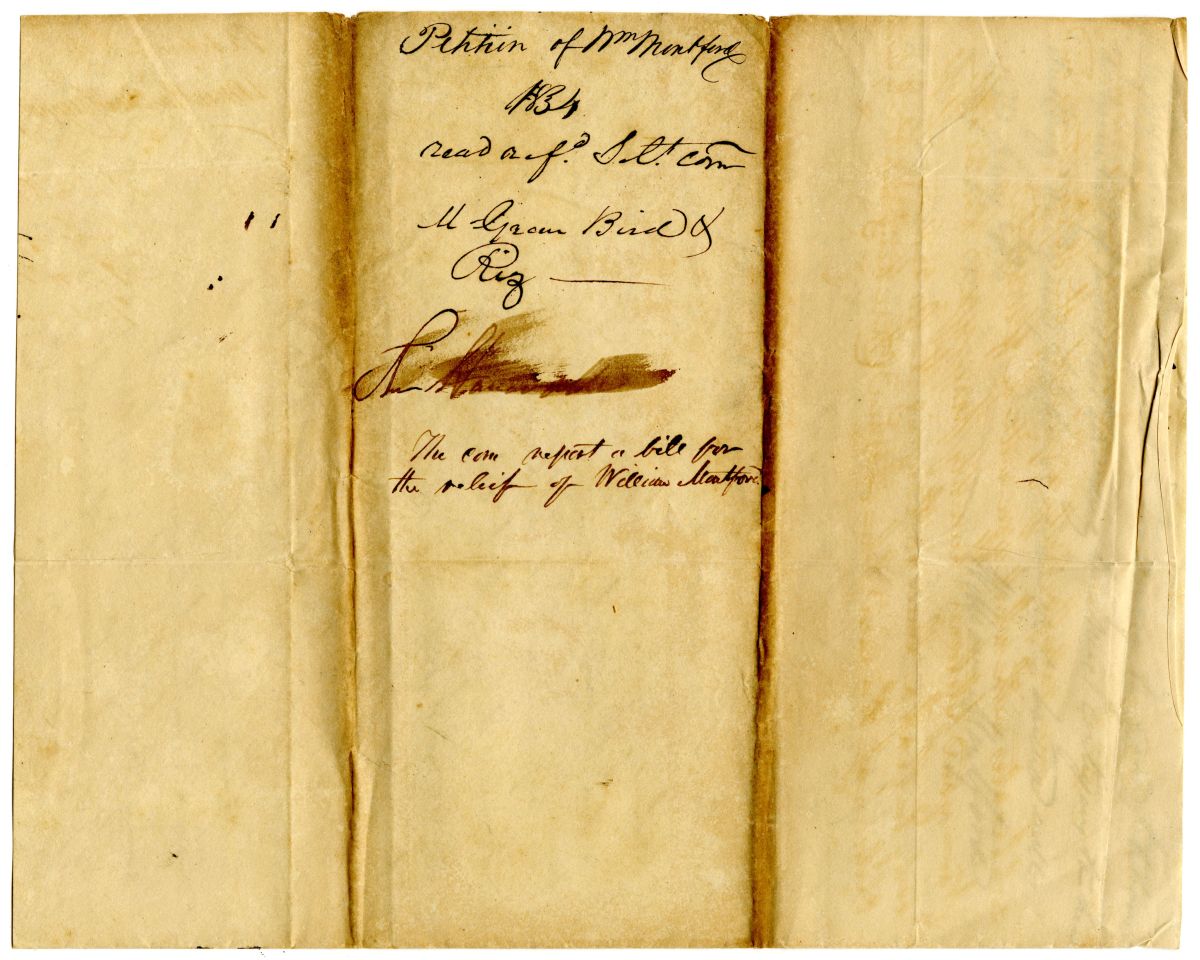 Petition of Wm Montford
1834
read & refd. Selt. com
Mc Graw Bird &
Riz
The com report a bill for
the relief of William Montford